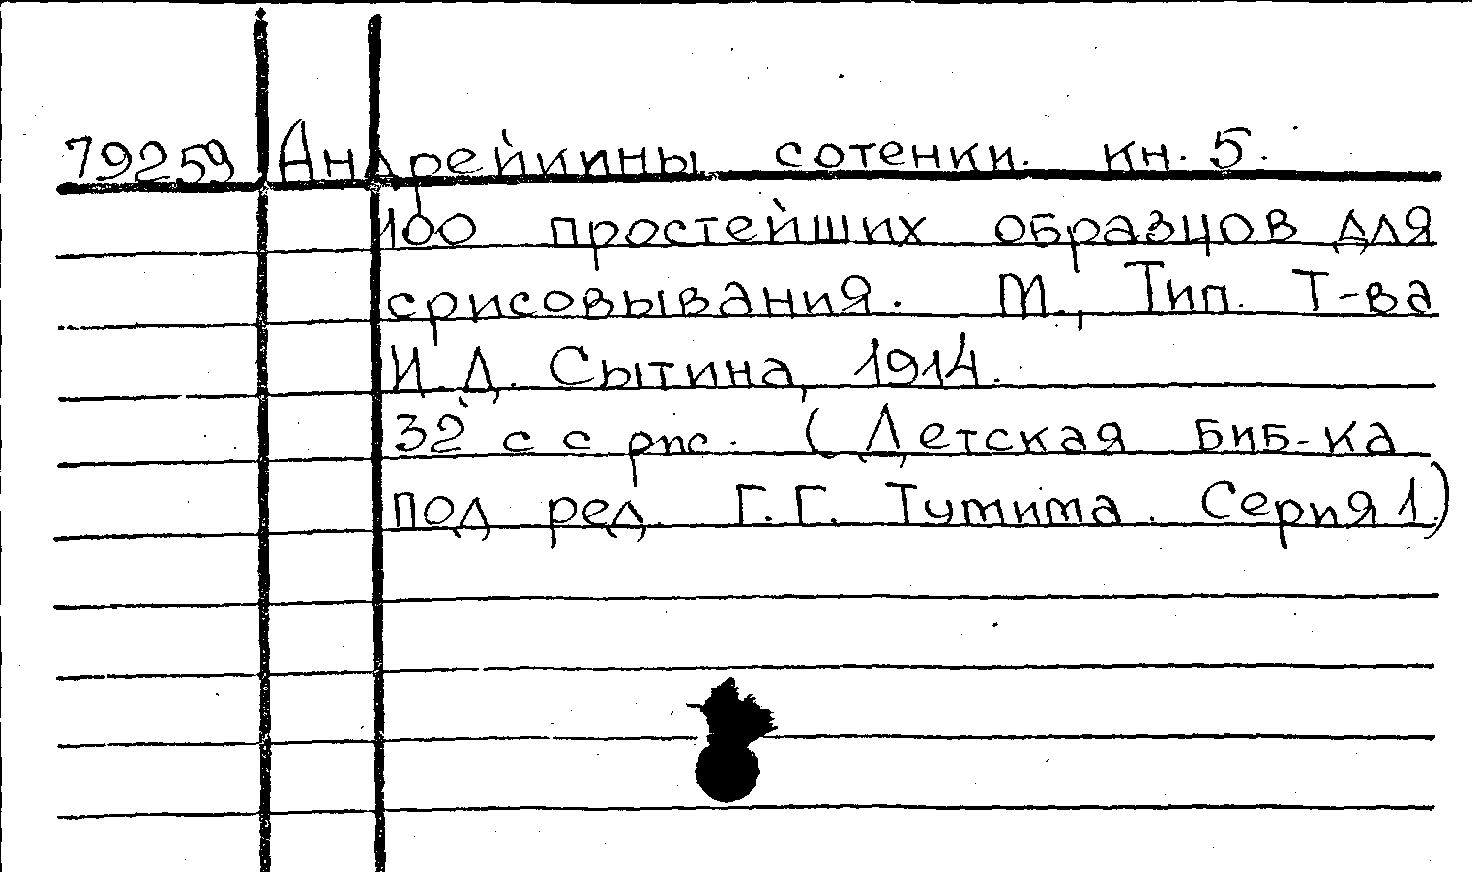 79259 Андрейкины сотенки. кн. 5.
100 простейших образцов для
срисовывания. М., Тип. Т-ва
И.Д. Сытина, 1914.
32 с с рис. (Детская биб-ка
под ред. Г.Г. Тумима. Серия 1.)